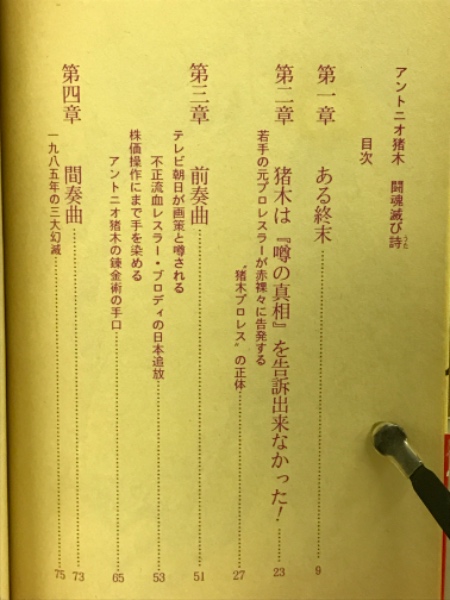 アントニオ猪木 闘魂滅び詩
うた
目次
第一章 ある終末……9
第二章 猪木は『噂の真相』を告訴出来なかった!……23
若手の元プロレスラーが赤裸々に告発する
“猪木プロレス”の正体……27
第三章 前奏曲……51
テレビ朝日が画策と噂される
不正流血レスラー・ブロディの日本追放……53
株価操作にまで手を染める
アントニオ猪木の錬金術の手口……65
第四章 間奏曲……73
一九八五年の三大幻滅……75